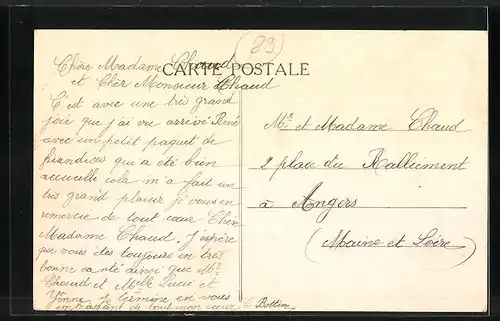 (89)
CARTE POSTALE
Chère Madame Chaud
et Cher Monsieur Chaud
C'est avec une très grand
joie que j'ai vu arrivé René
avec un petit paquet de
friandises qui a été bien
accueille cela m'a fait un
très grand plaisir je vous en
remercie de tout cœur Chère
Madame Chaud. J'espère
que vous êtes toujours en très
bonne santé ainsi que Mr
Chaud et Melle Lucie et
Yvonne je termine en vous
embrassant de tout mon cœur
Bottin
Mr et Madame Chaud
2 place du Ralliement
à Angers
(Maine et Loire)